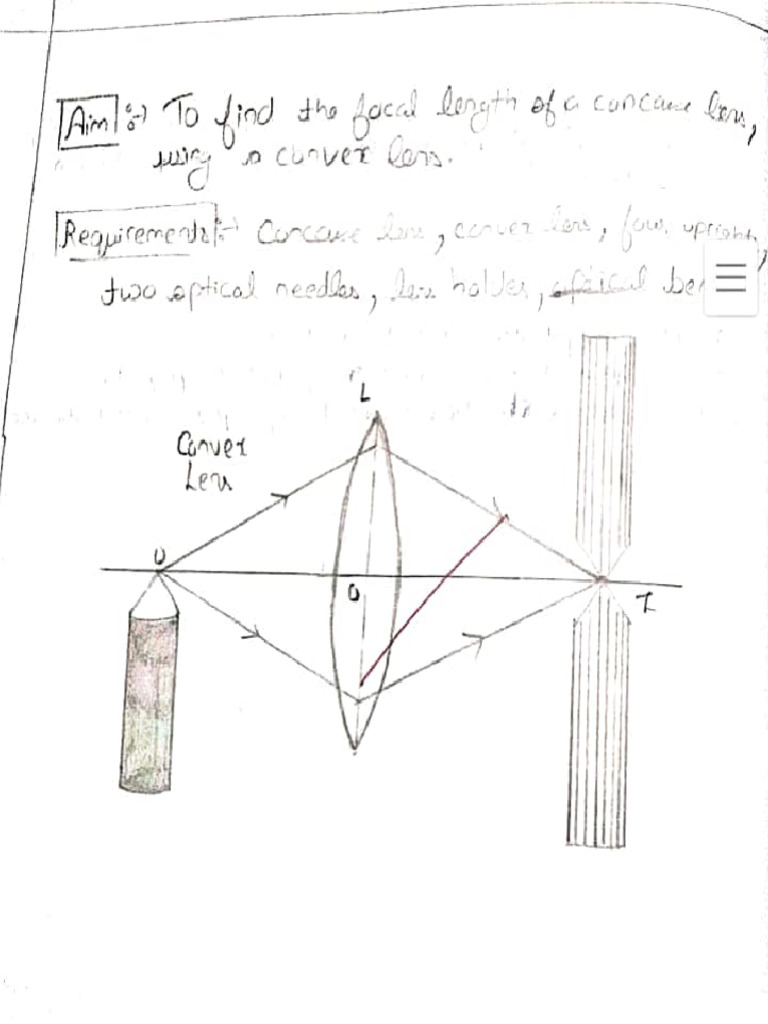 Aim :-) To find the focal length of a concave lens,
using a convex lens.
Requirements :-) Concave lens, convex lens, four upright,
two optical needles, lens holder, optical be
L
Convex
Lens
O
O
I